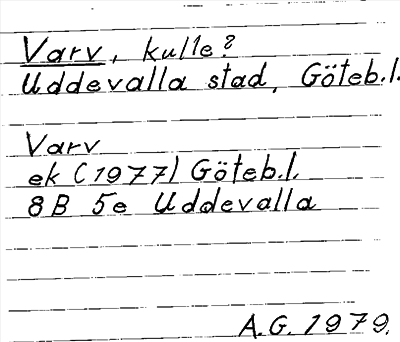 Varv, kulle?
Uddevalla stad, Göteb.l.
Varv
ek (1977) Göteb.l.
8B 5e Uddevalla
A.G. 1979.